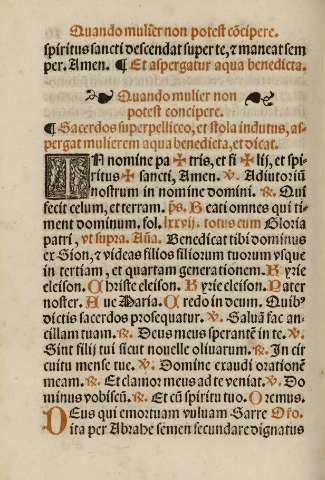 Quando mulier non potest cōcipere.
spiritus sancti descendat super te, & maneat sem
per. Amen. ¶ Et aspergatur aqua benedicta.
Quando mulier non
potest concipere.
¶ Sacerdos superpelliceo, et stola indutus, as-
pergat mulierem aqua benedicta, et dicat.
IN nomine pa ✠ tris, et fi ✠ lij, et spi
ritus ✠ sancti, Amen. ℣. Adiutoriū
nostrum in nomine domini. ℟. Qui
fecit celum, et terram. ps. Beati omnes qui ti-
ment dominum. fol. lxxvij. totus cum Gloria
patri, vt supra. Aña. Benedicat tibi dominus
ex Sion, & videas filios filiorum tuorum vsque
in tertiam, et quartam generationem. Kyrie
eleison. Christe eleison. Kyrie eleison. Pater
noster. Aue Maria. Credo in deum. Quibꝰ
dictis sacerdos prosequatur. ℣. Saluā fac an-
cillam tuam. ℟. Deus meus sperantē in te. ℣.
Sint filij tui sicut nouelle oliuarum. ℟. In cir
cuitu mense tue. ℣. Domine exaudi orationē
meam. ℟. Et clamor meus ad te veniat. ℣. Do
minus vobiscū. ℟. Et cū spiritu tuo. Oremus.
DEus qui emortuam vuluam Sarre Oro.
ita per Abrahe semen fecundare dignatus